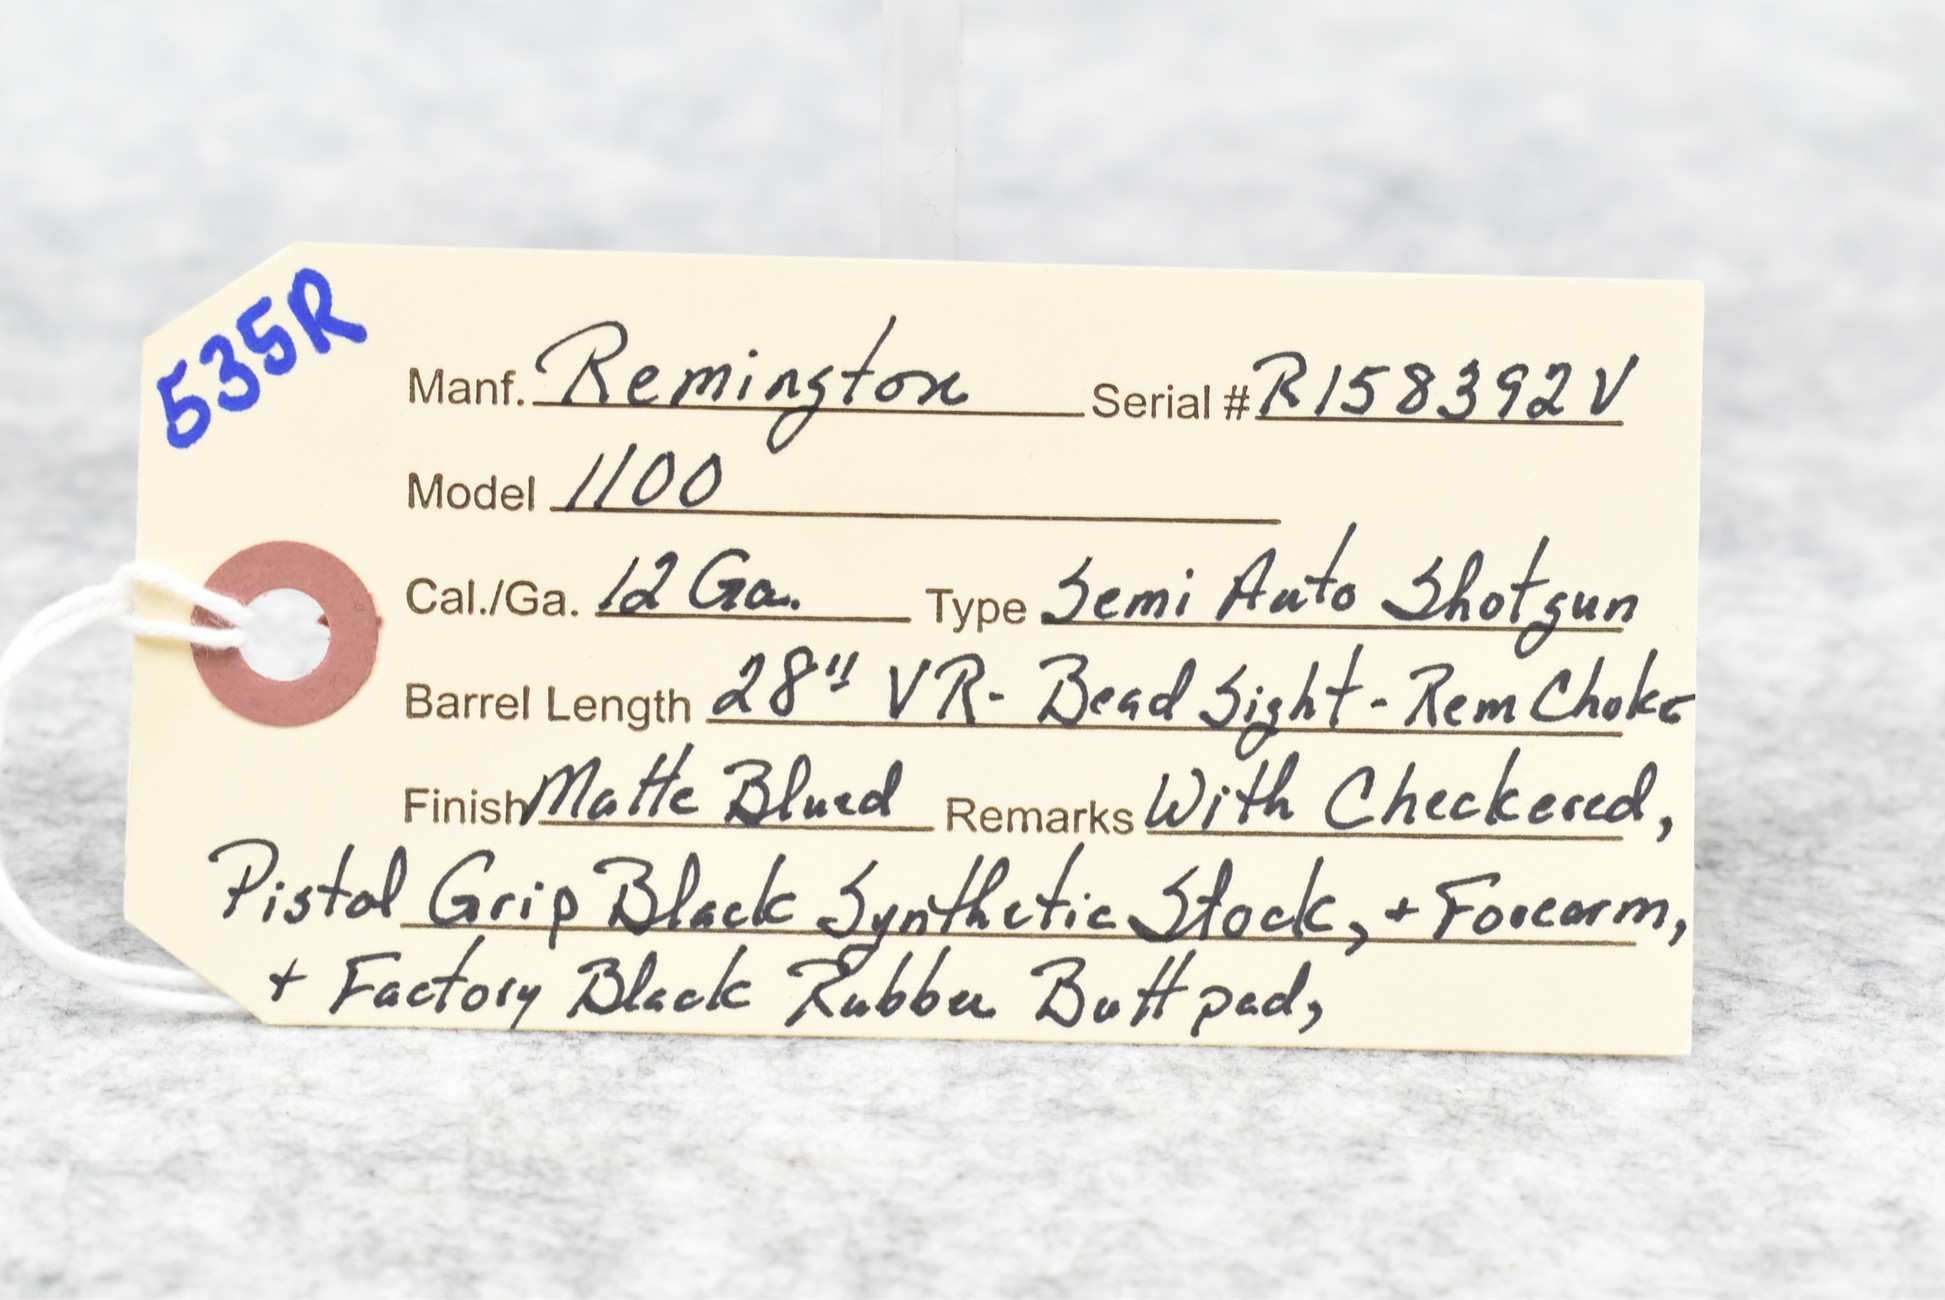 535R
Manf. Remington Serial # R158392V
Model 1100
Cal./Ga. 12 Ga. Type Semi Auto Shotgun
Barrel Length 28" VR- Bead Sight - Rem Choke
Finish Matte Blued Remarks With Checkered,
Pistol Grip Black Synthetic Stock, + Forearm,
+ Factory Black Rubber Butt pad,